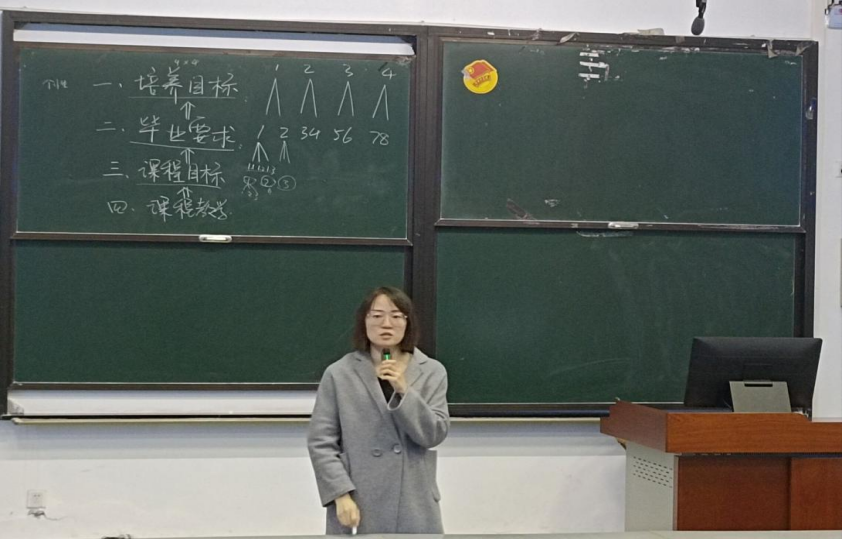 一、培养目标 1 2 3 4
二、毕业要求: 1 2 34 56 78
三、课程目标 ② ③
四、课程教学